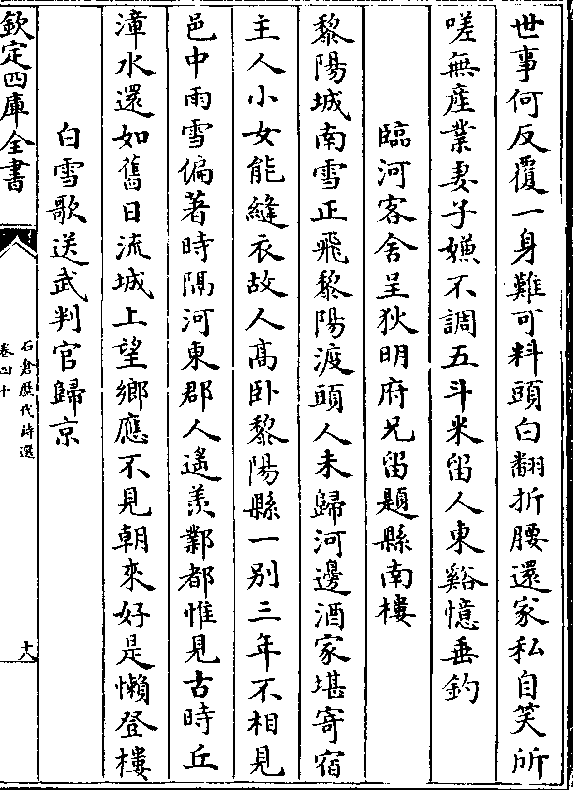 世事何反覆一身難可料頭白翻折腰還家私自笑所
嗟無産業妻子嫌不調五斗米留人東谿憶垂釣
臨河客舍呈狄明府兄留題縣南樓
黎陽城南雪正飛黎陽渡頭人未歸河邊酒家堪寄宿
主人小女能縫衣故人髙卧黎陽縣一别三年不相見
邑中雨雪偏著時隔河東郡人遙羨鄴都惟見古時丘
漳水還如舊日流城上望鄉應不見朝來好是懶登樓
白雪歌送武判官歸京
欽定四庫全書
石倉歷代詩選
卷四十
十八